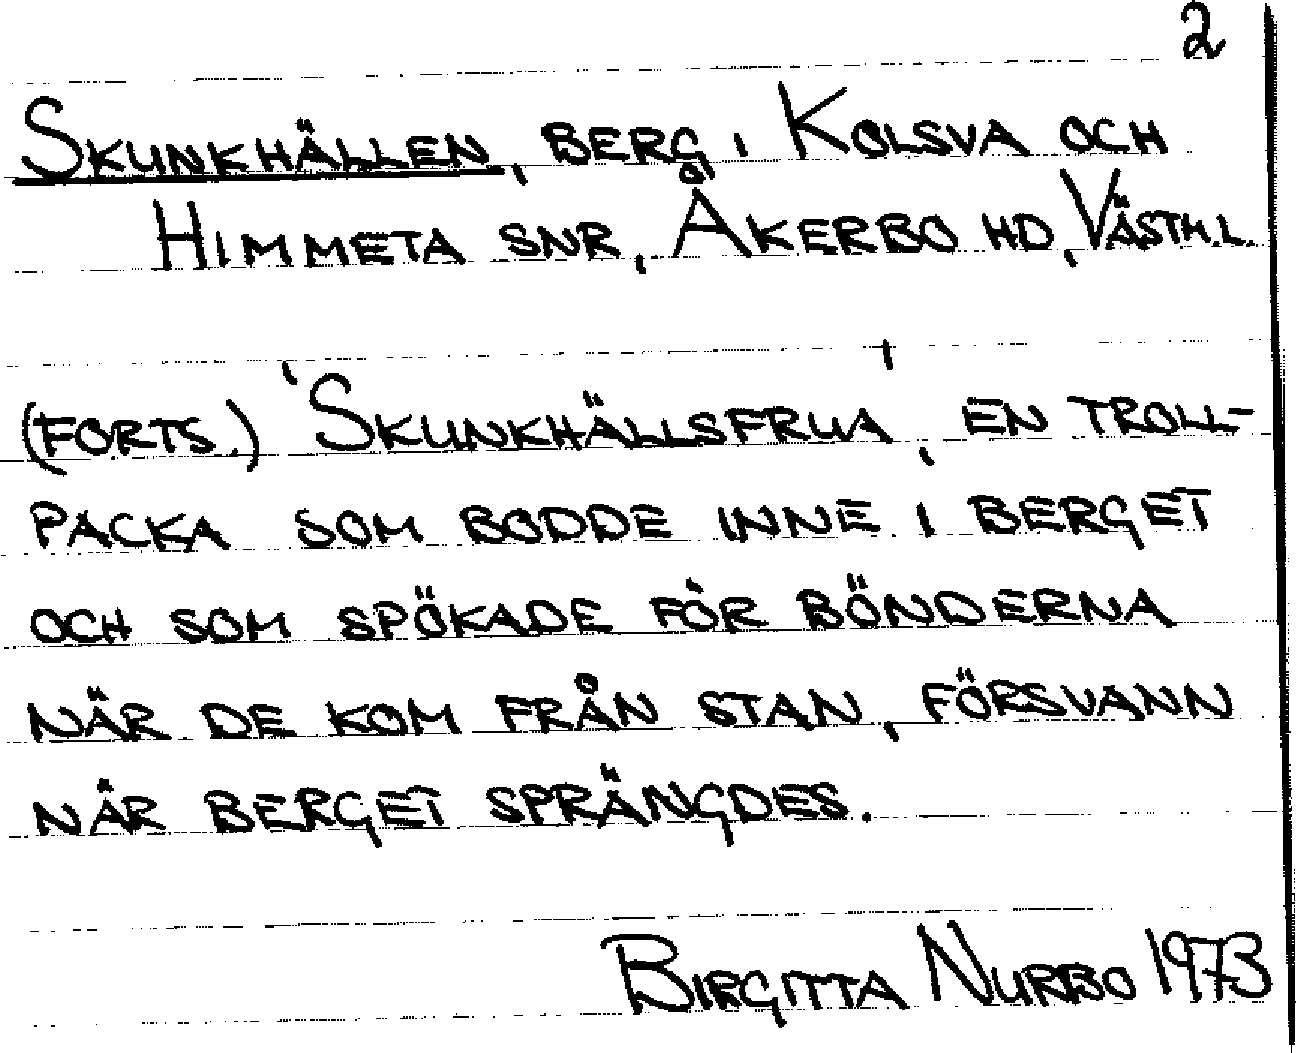 2
Skunkhällen, berg i Kolsva och
Himmeta snr, Åkerbo hd, Västm.l.
(forts.) 'Skunkhällsfrua', en troll-
packa som bodde inne i berget
och som spökade för bönderna
när de kom från stan, försvann
når berget sprängdes.
Birgitta Nurbo 1973